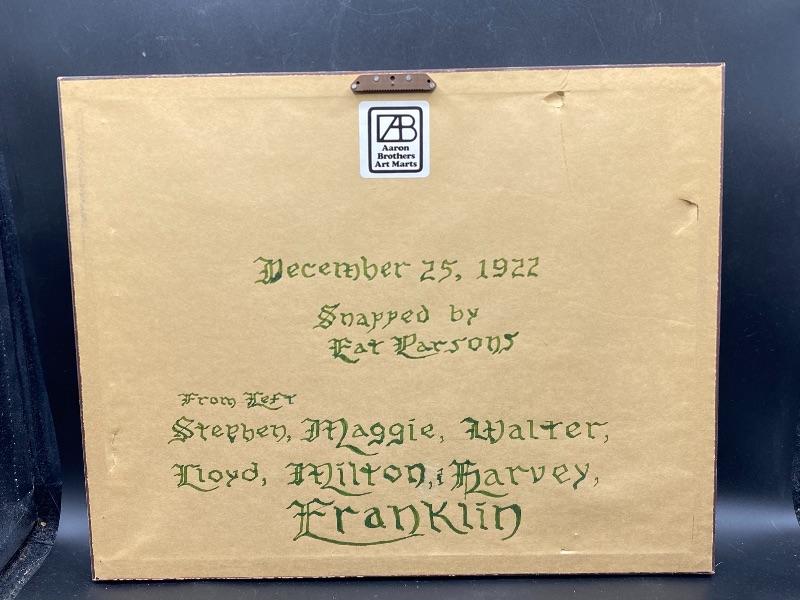 AB
Aaron
Brothers
Art Marts
December 25, 1922
Snapped by
Parsons
From Left
Stephen, Maggie, Walter,
Lloyd, Milton, Harvey,
Franklin